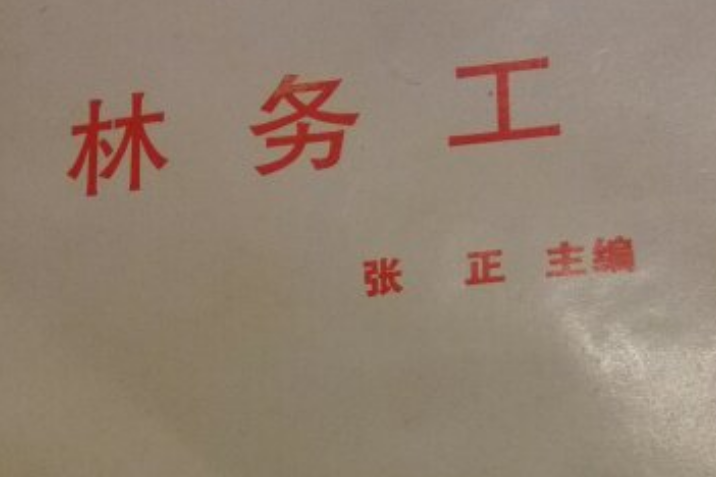 林务工
张 正 主编